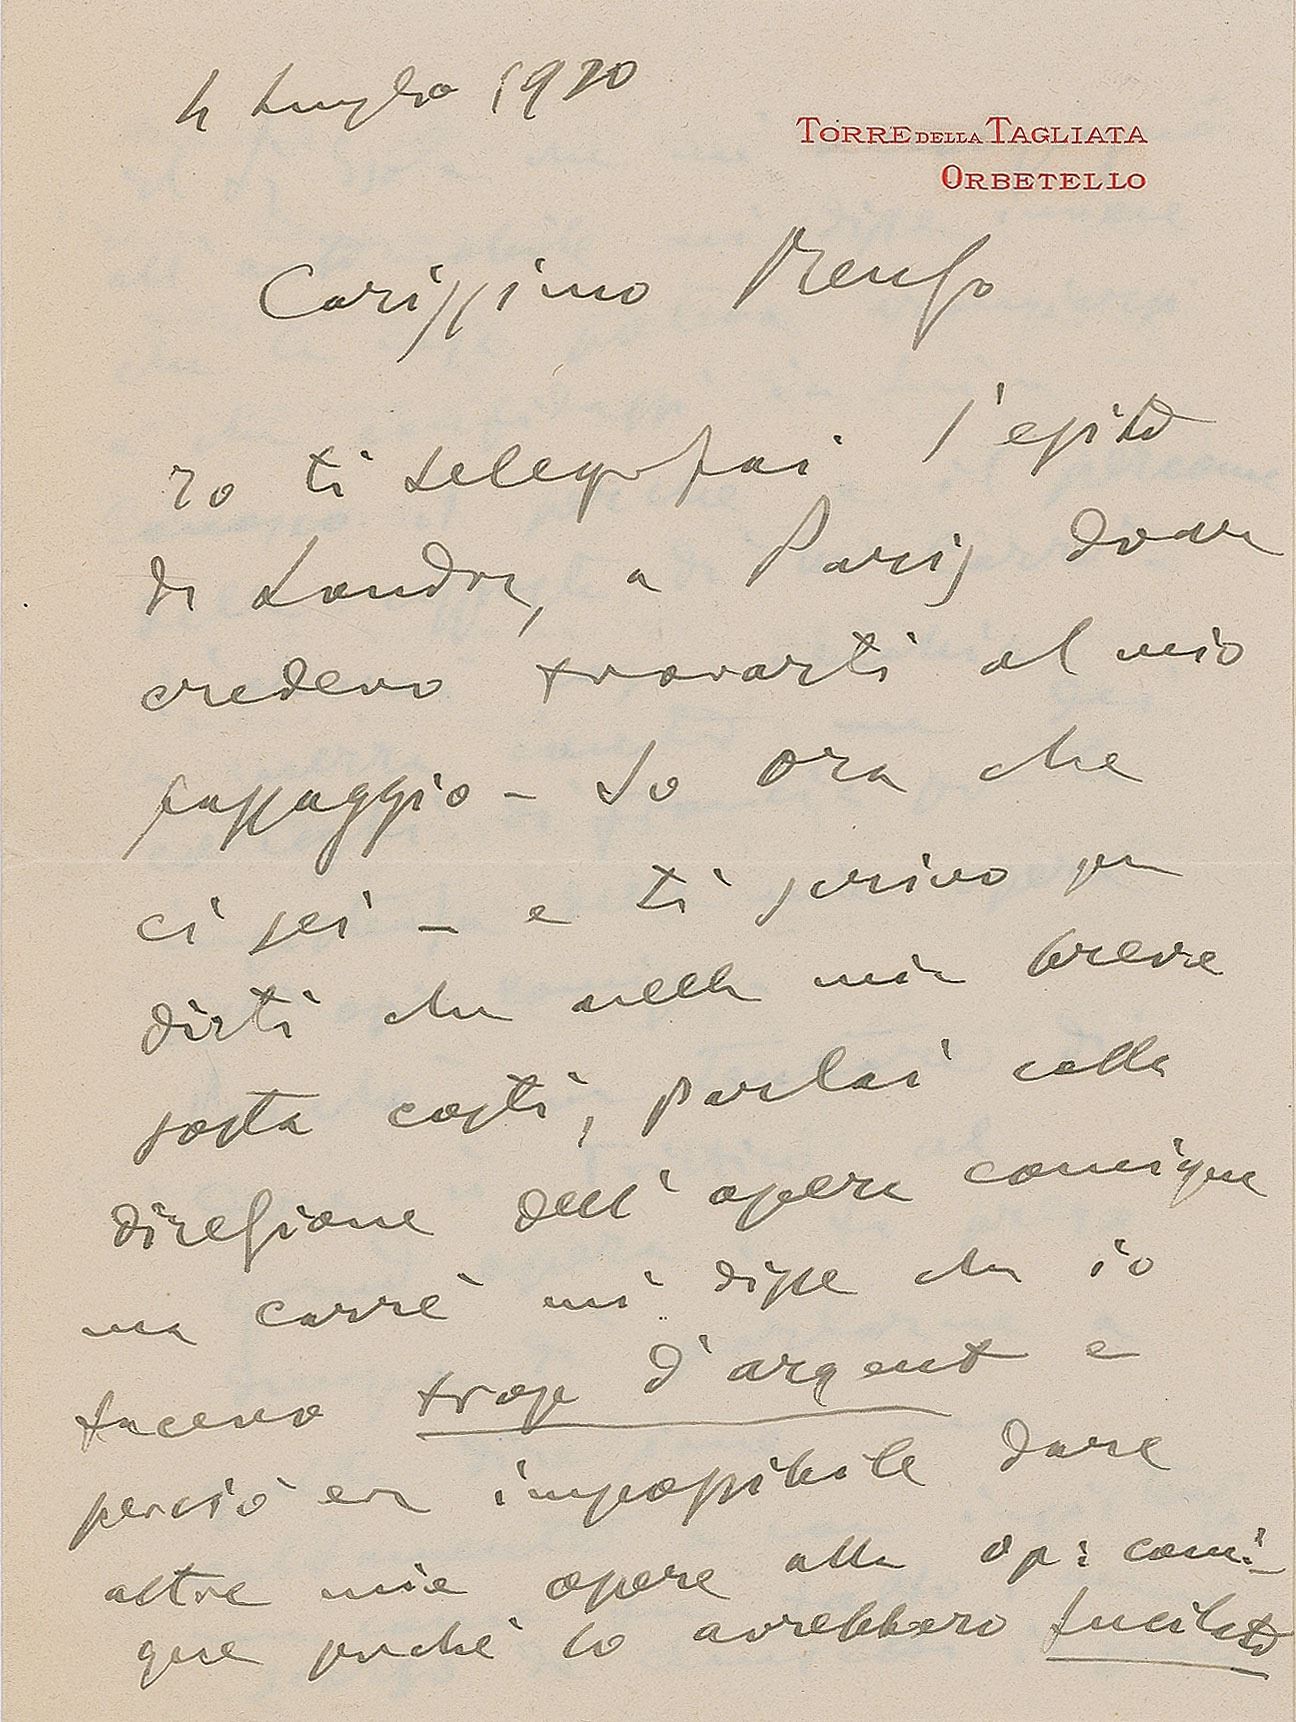 4 Luglio 1920
TORRE DELLA TAGLIATA
ORBETELLO
Carissimo Renzo
Io ti telegrafai l'esito
di Londra, a Parigi dove
credevo trovarti al mio
passaggio – So ora che
ci sei – e ti scrivo per
dirti che nella mia breve
sosta costì, parlai colla
direzione dell'opera comique
ma carrè mi disse che io
facevo trop d'argent e
perciò era impossibile dare
altre mie opere alla op: comi-
que perchè lo avrebbero fucilato